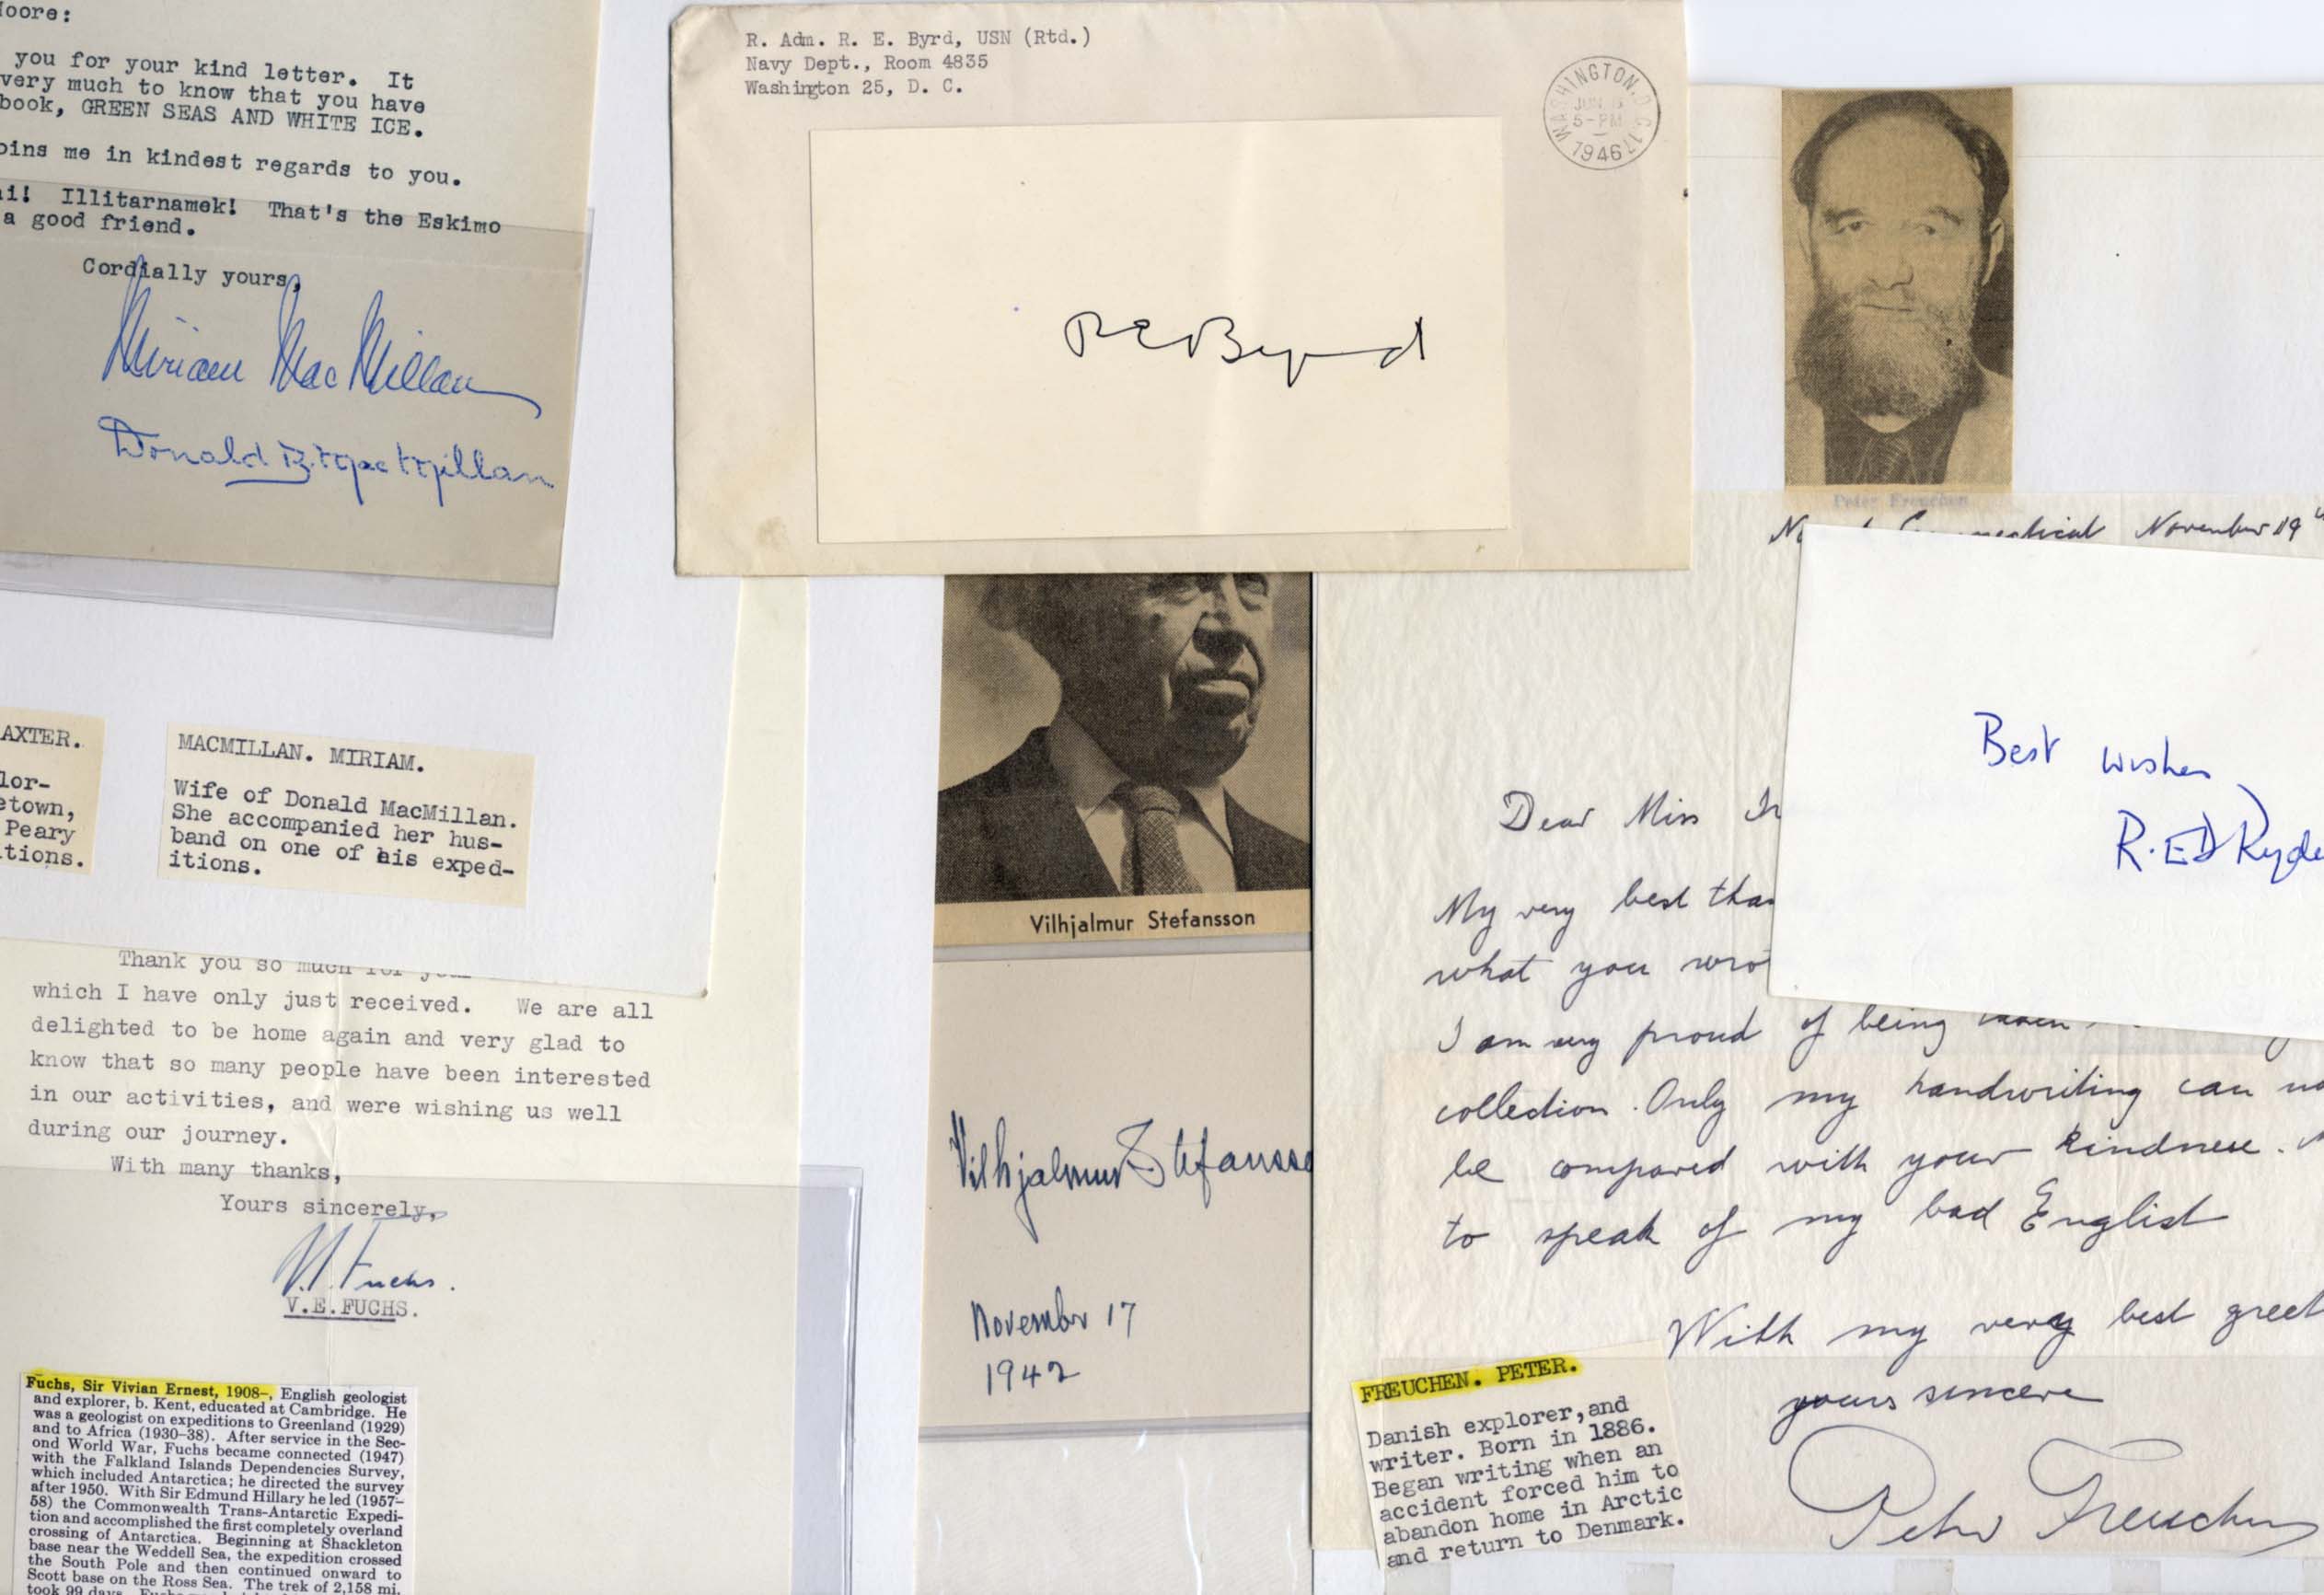 Moore:
you for your kind letter. It
very much to know that you have
book, GREEN SEAS AND WHITE ICE.
me in kindest regards to you.
Illitarnamek! That's the Eskimo
a good friend.
Cordially yours,
Miriam MacMillan
Donald B. MacMillan
AXTER.
lor-
etown,
Peary
tions.
MACMILLAN. MIRIAM.
Wife of Donald MacMillan.
She accompanied her hus-
band on one of his exped-
itions.
Thank you so much for your
which I have only just received. We are all
delighted to be home again and very glad to
know that so many people have been interested
in our activities, and were wishing us well
during our journey.
With many thanks,
Yours sincerely,
V. Fuchs.
V.E.FUCHS.
Fuchs, Sir Vivian Ernest, 1908–, English geologist
and explorer, b. Kent, educated at Cambridge. He
was a geologist on expeditions to Greenland (1929)
and to Africa (1930–38). After service in the Sec-
ond World War, Fuchs became connected (1947)
with the Falkland Islands Dependencies Survey,
which included Antarctica; he directed the survey
after 1950. With Sir Edmund Hillary he led (1957–
58) the Commonwealth Trans-Antarctic Expedi-
tion and accomplished the first completely overland
crossing of Antarctica. Beginning at Shackleton
base near the Weddell Sea, the expedition crossed
the South Pole and then continued onward to
Scott base on the Ross Sea. The trek of 2,158 mi.
took 99 days.
R. Adm. R. E. Byrd, USN (Rtd.)
Navy Dept., Room 4835
Washington 25, D. C.
WASHINGTON, D.C.
JUN
5-PM
1946
R E Byrd
Vilhjalmur Stefansson
Vilhjalmur Stefansso
November 17
1942
Peter Freuchen
November 19
Dear Miss
My very best than
what you wro
I am very proud of being
collection. Only my handwriting can
be compared with your kindness.
to speak of my bad English
With my very best greet
yours sincere
Peter Freuchen
Best wishes
R.E.D Ryde
FREUCHEN. PETER.
Danish explorer,and
writer. Born in 1886.
Began writing when an
accident forced him to
abandon home in Arctic
and return to Denmark.